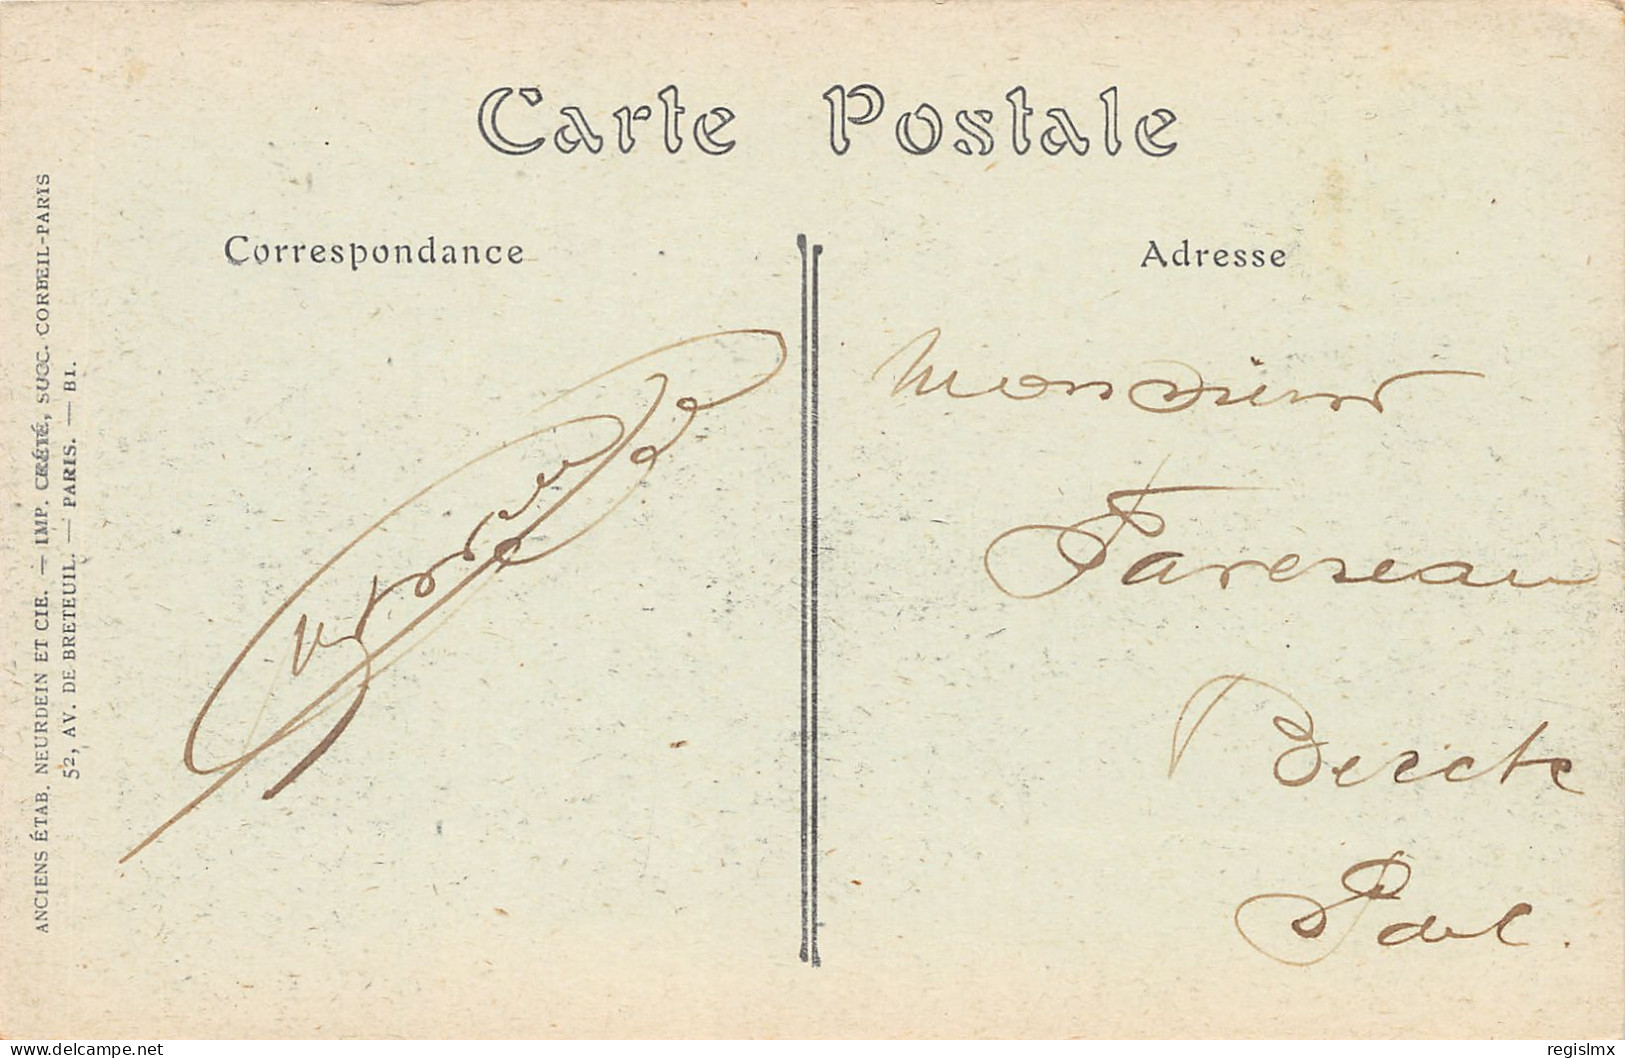 Carte Postale
Correspondance
Adresse
Monsieur
Berck
P d C.
ANCIENS ÉTAB. NEURDEIN ET CIE. — IMP. CRÉTÉ, SUCC. CORBEIL-PARIS
52, AV. DE BRETEUIL. — PARIS. — BI.
www.delcampe.net
regislmx